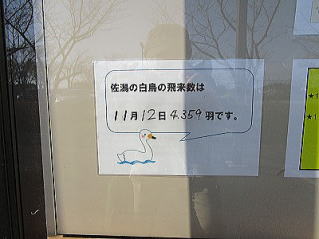 佐潟の白鳥の飛来数は
11月12日4,359羽です。
★1
★1